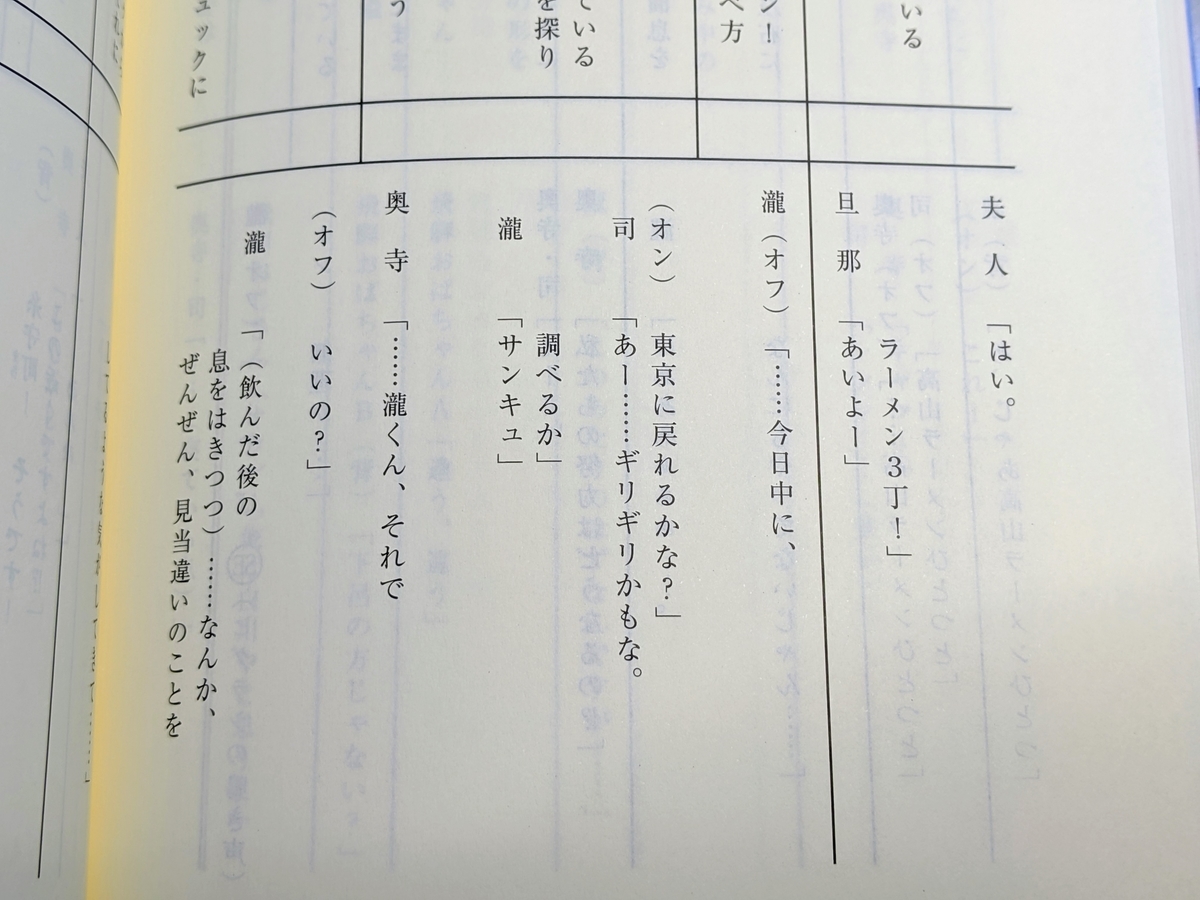 いる
ン！
べ方
ている
を探り
う
ュックに
夫　人　「はい。
ラーメン３丁！」
旦　那　「あいよー」
瀧（オフ）「……今日中に、
（オン）　東京に戻れるかな？」
司　　「あー……ギリギリかもな。
調べるか」
瀧　　「サンキュ」
奥　寺　「……瀧くん、それで
（オフ）　いいの？」
瀧　　「（飲んだ後の
息をはきつつ）……なんか、
ぜんぜん、見当違いのことを